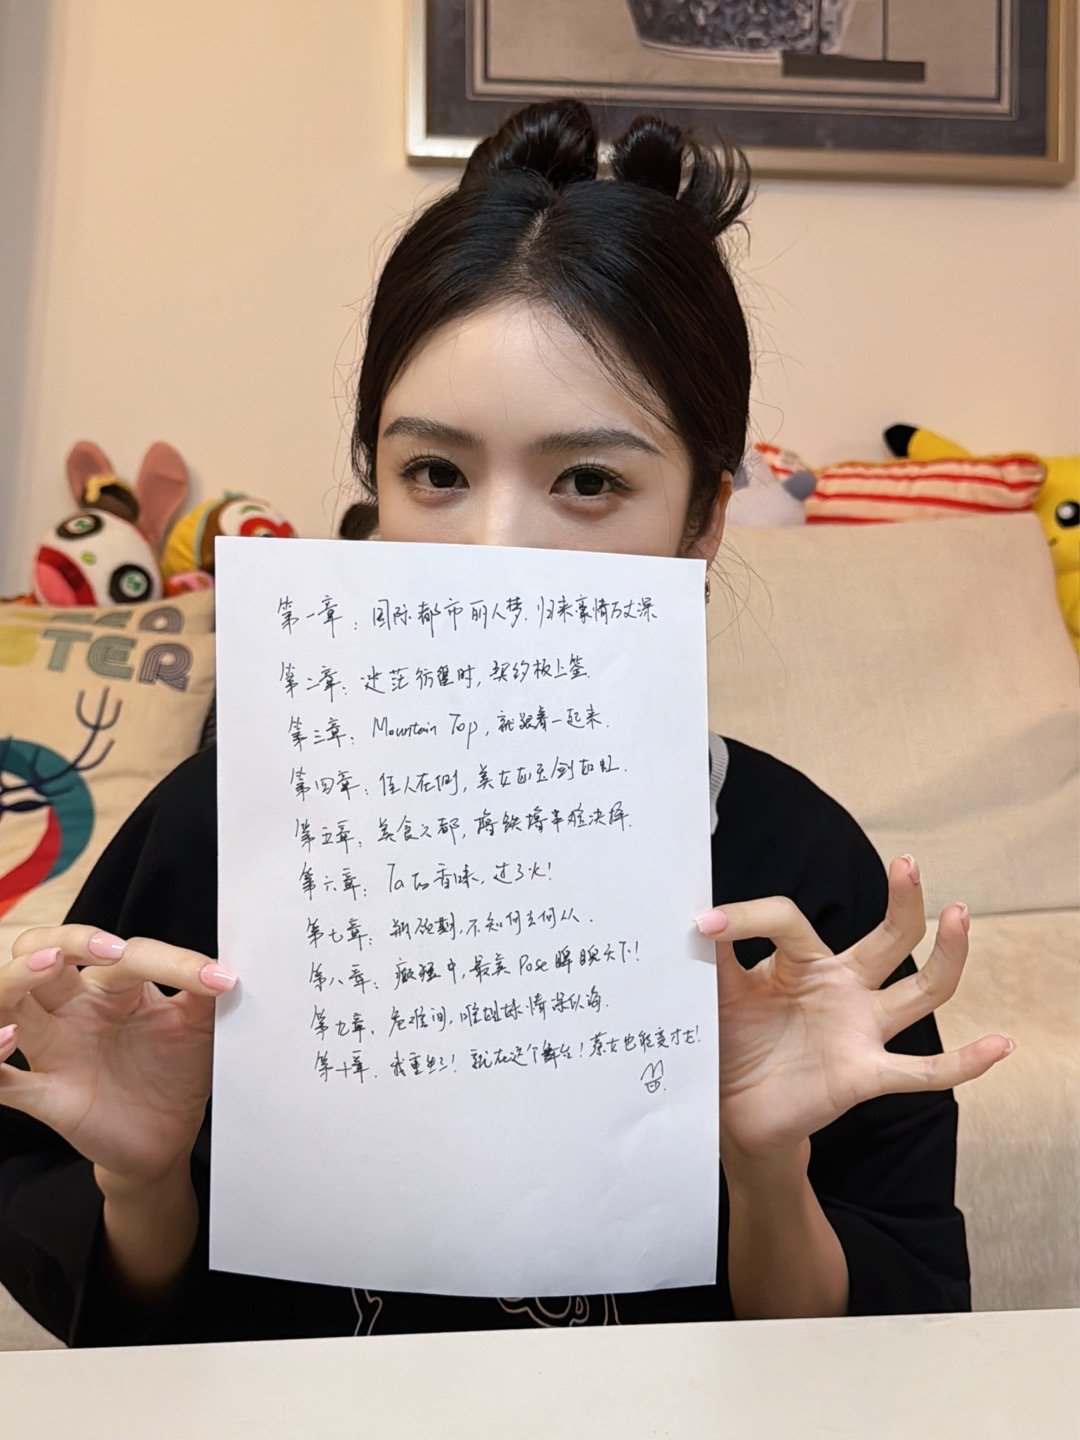 TER
第一章：国际都市丽人梦，归来豪情万丈深
第二章：迷茫彷徨时，契约板上签.
第三章：Mountain Top，就跟着一起来.
第四章：佳人在侧，美女如云剑如虹.
第五章：美食之都，
第六章：Ta Ta香味，过了火！
第七章：不知何去何从.
第八章：癫狂中，最美Pose睥睨天下！
第九章：危难间，唯姐妹情深似海.
第十章：我重生了！就在这个舞台！菜女也能变才女！